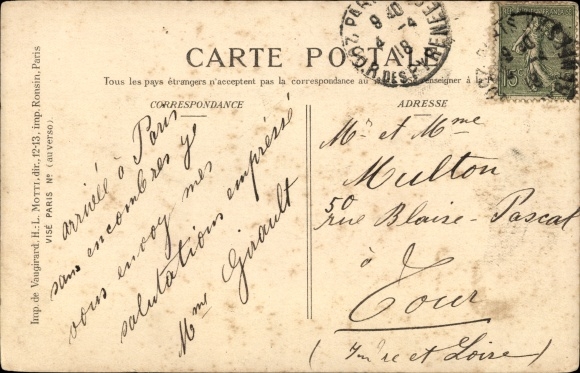 CARTE POSTALE
Tous les pays étrangers n'acceptent pas la correspondance au
CORRESPONDANCE
ADRESSE
arrivéé à Paris
sans encombres je
vous envoy mes
salutations empréssé
Mme Girault
Mr et Mme
Multon
50
rue Blaise-Pascal
à
Tour
(Indre et Loire)
Imp. de Vaugirard, H.-L. MOTTI, dir., 12-13, imp. Ronsin, Paris
VISÉ PARIS No (au verso).
9 30
4
4 18
R. DES PYRENEES
15